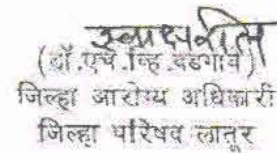 स्वाक्षरीत
(डॉ.एच.व्हि.वडगावे)
जिल्हा आरोग्य अधिकारी
जिल्हा परिषद लातूर